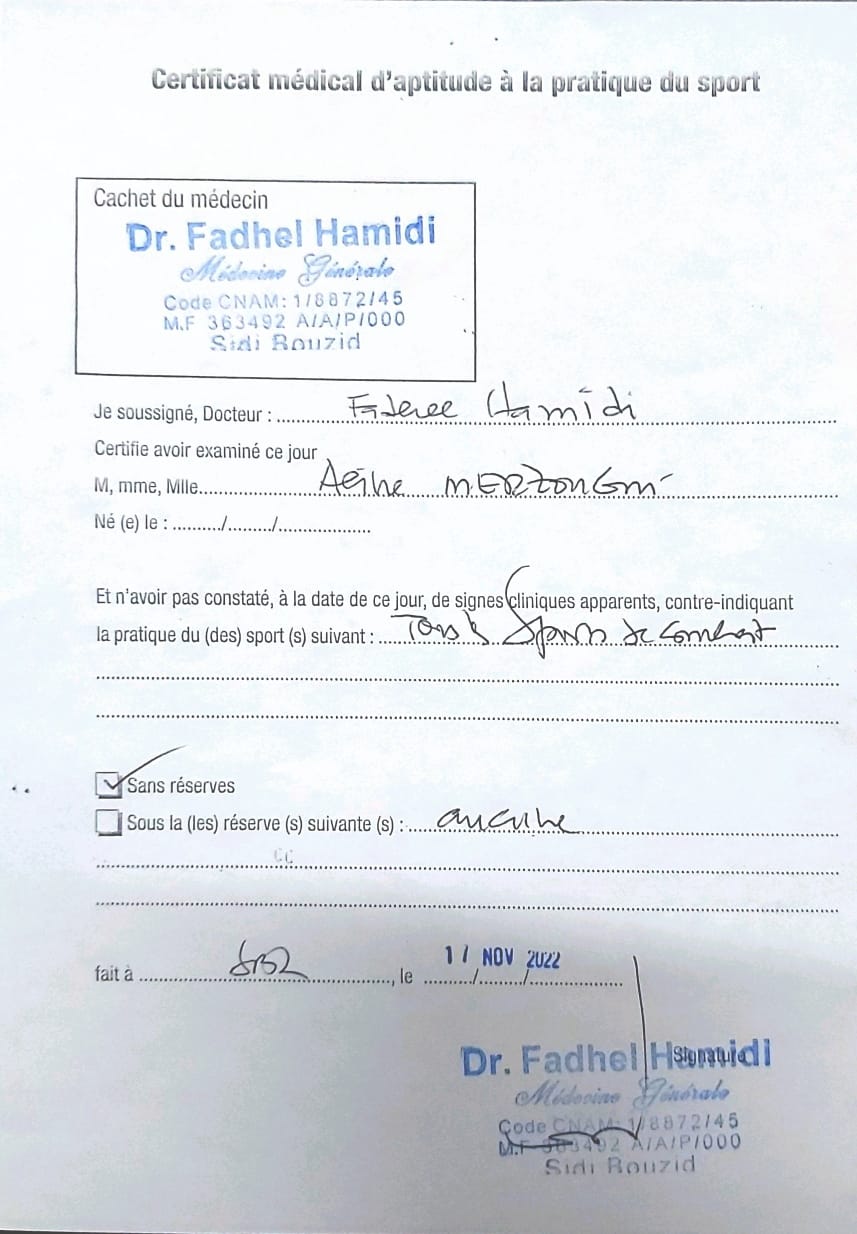 Certificat médical d'aptitude à la pratique du sport
Cachet du médecin
Dr. Fadhel Hamidi
Médecine Générale
Code CNAM: 1/8872/45
M.F 363492 A/A/P/000
Sidi Bouzid
Je soussigné, Docteur : Hamidi
Certifie avoir examiné ce jour
M, mme, Mlle
Né (e) le : ........./........./..................
Et n'avoir pas constaté, à la date de ce jour, de signes cliniques apparents, contre-indiquant
la pratique du (des) sport (s) suivant : Tous les Sports de Combat
Sans réserves
Sous la (les) réserve (s) suivante (s) : aucune
fait à, le NOV 2022
Signature
Dr. Fadhel Hamidi
Médecine Générale
Code CNAM: 1/8872/45
M.F 363492 A/A/P/000
Sidi Bouzid